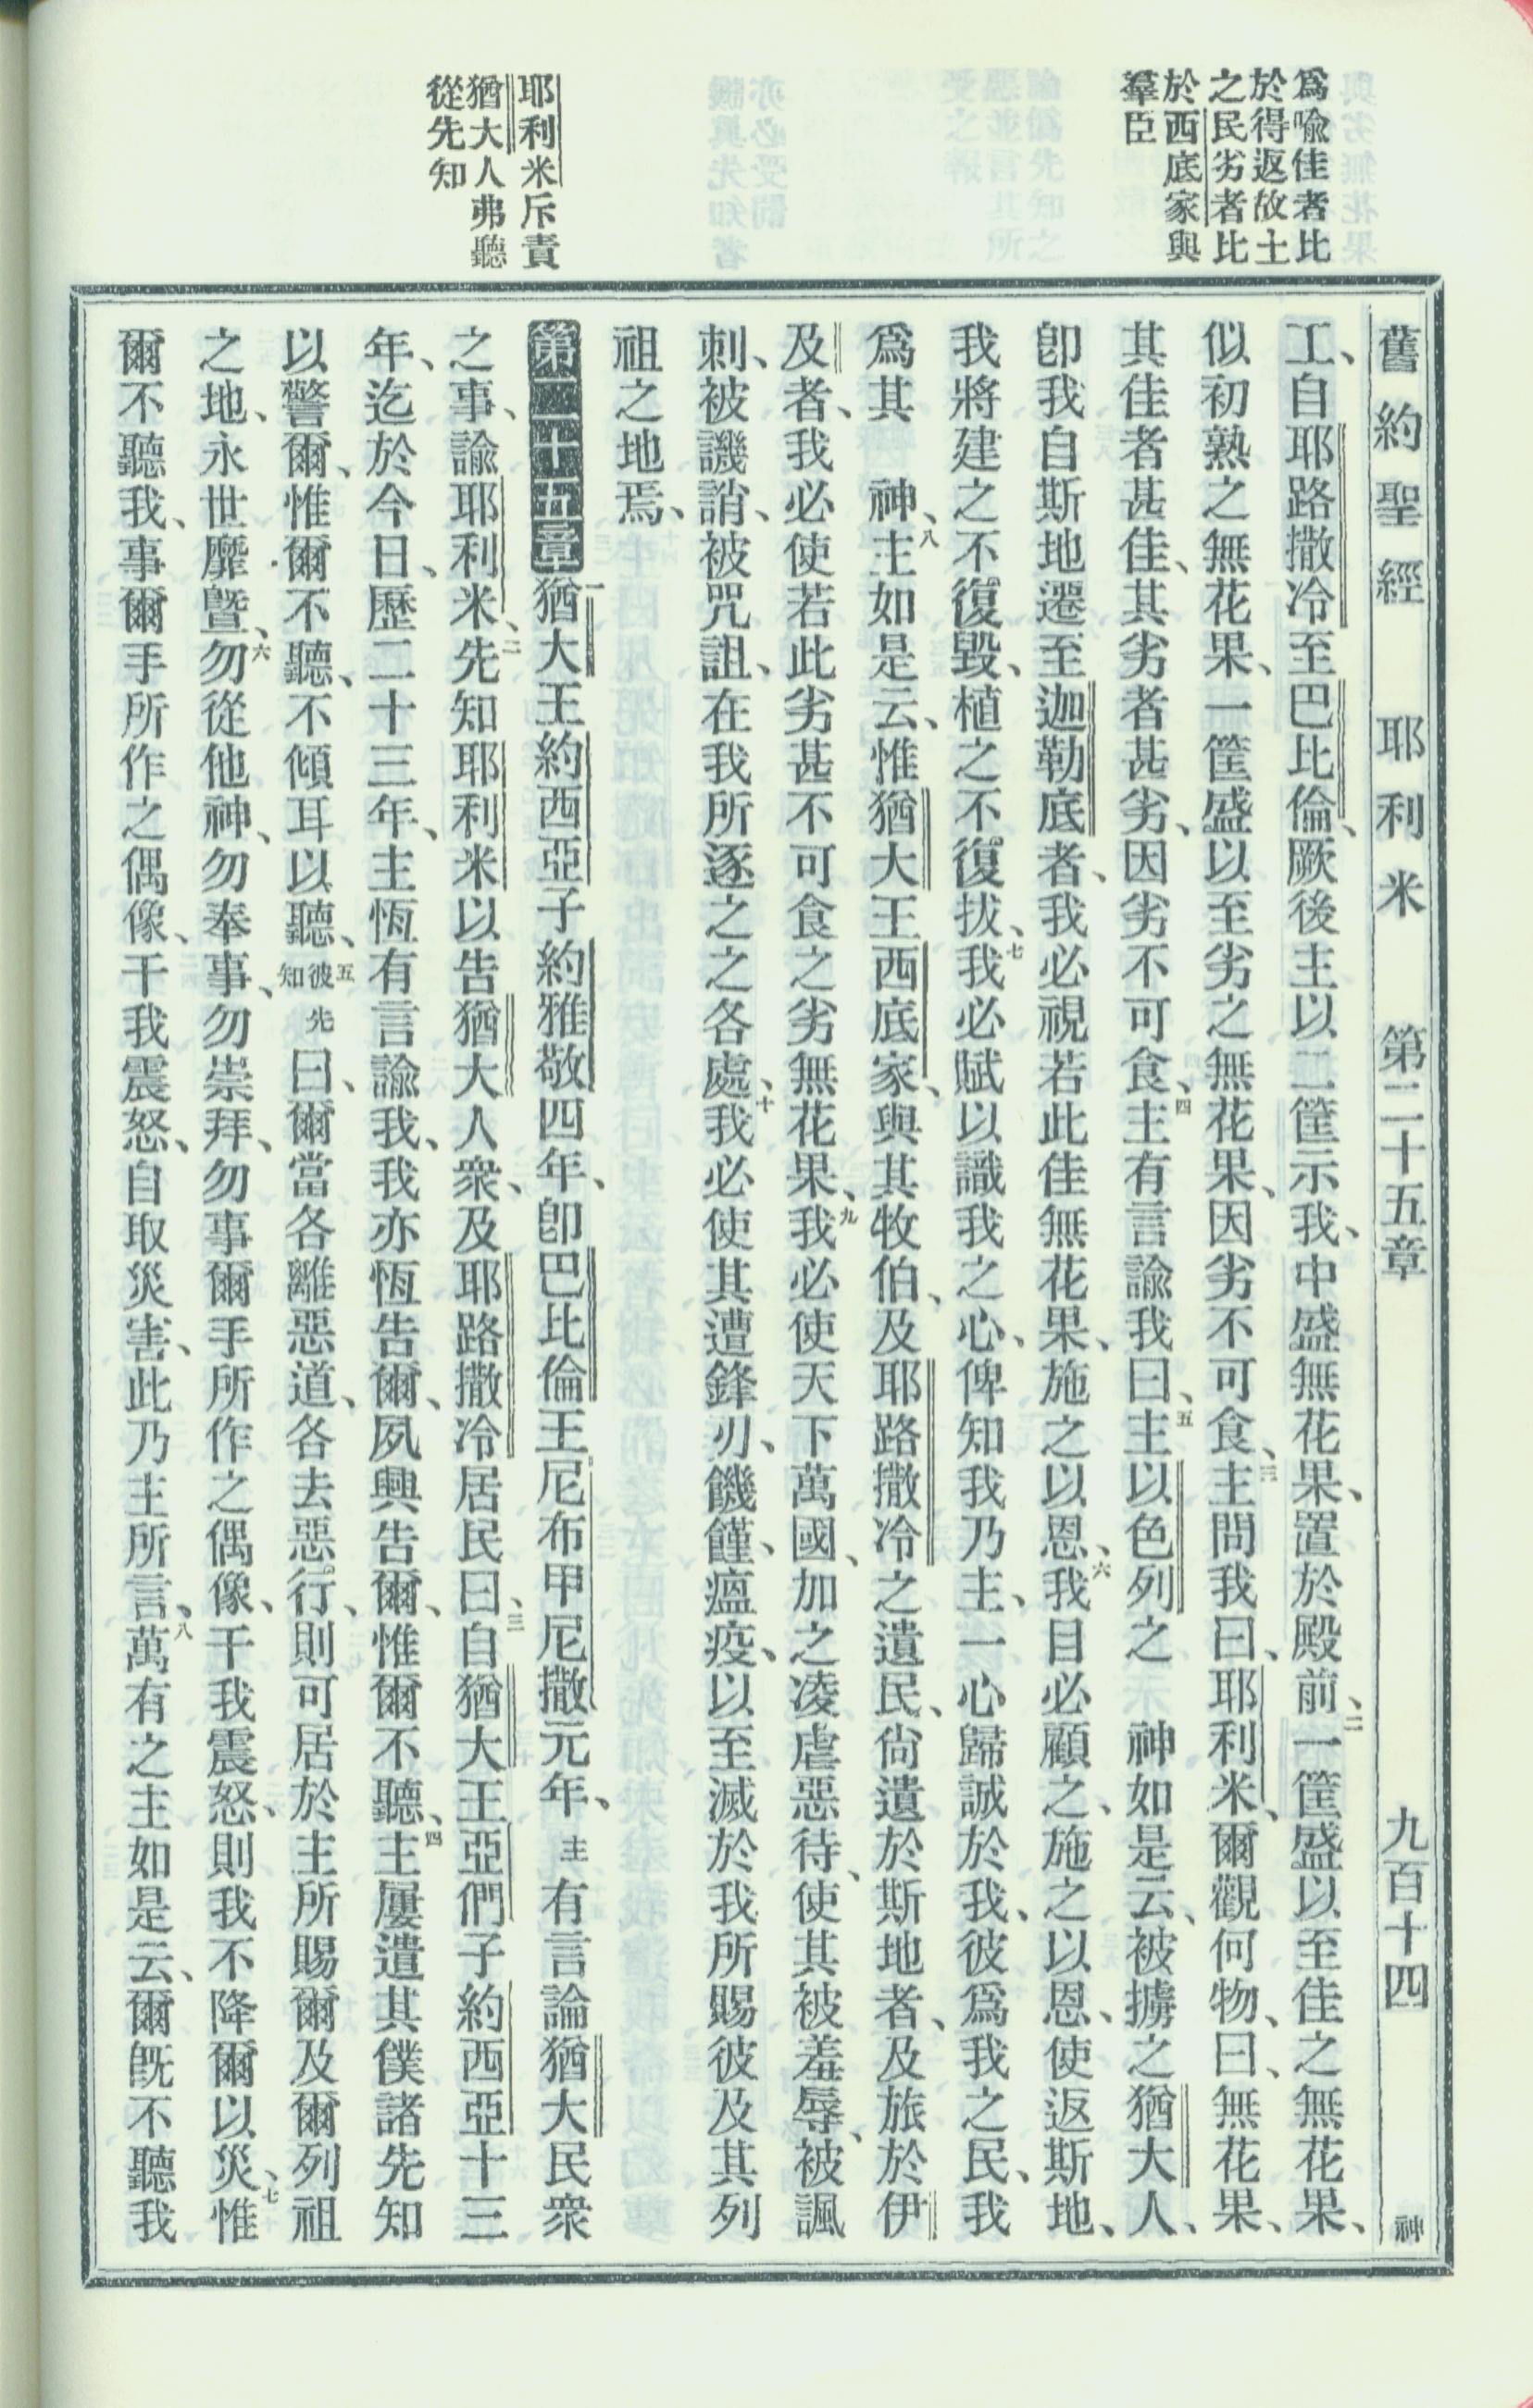 舊約聖經　耶利米　第二十五章　九百十四　神
爲喩佳者比
於得返故土
之民劣者比
於西底家與
羣臣
工、自耶路撒冷至巴比倫、厥後主以二筐示我、中盛無花果、置於殿前、二一筐盛以至佳之無花果、
似初熟之無花果、一筐盛以至劣之無花果、因劣不可食、三主問我曰、耶利米、爾觀何物、曰、無花果、
其佳者甚佳、其劣者甚劣、因劣不可食、四主有言諭我曰、五主以色列之　神如是云、被擄之猶大人、
卽我自斯地遷至迦勒底者、我必視若此佳無花果、施之以恩、六我目必顧之、施之以恩、使返斯地、
我將建之不復毀、植之不復拔、七我必賦以識我之心、俾知我乃主、一心歸誠於我、彼爲我之民、我
爲其　神、八主如是云、惟猶大王西底家、與其牧伯、及耶路撒冷之遺民、尙遺於斯地者、及旅於伊
及者、我必使若此劣甚不可食之劣無花果、九我必使天下萬國、加之凌虐惡待、使其被羞辱、被諷
刺、被譏誚、被咒詛、在我所逐之之各處、十我必使其遭鋒刃、饑饉、瘟疫、以至滅於我所賜彼及其列
祖之地焉、
耶利米斥責
猶大人弗聽
從先知
第二十五章一猶大王約西亞子約雅敬四年、卽巴比倫王尼布甲尼撒元年、主有言論猶大民衆
之事、諭耶利米、二先知耶利米以告猶大人衆、及耶路撒冷居民曰、三自猶大王亞們子約西亞十三
年、迄於今日、歷二十三年、主恆有言諭我、我亦恆告爾、夙興告爾、惟爾不聽、四主屢遣其僕諸先知
以警爾、惟爾不聽、不傾耳以聽、五彼先知曰、爾當各離惡道、各去惡行、則可居於主所賜爾及爾列祖
之地、永世靡曁、六勿從他神、勿奉事、勿崇拜、勿事爾手所作之偶像、干我震怒、則我不降爾以災、七惟
爾不聽我、事爾手所作之偶像、干我震怒、自取災害、此乃主所言、八萬有之主如是云、爾旣不聽我